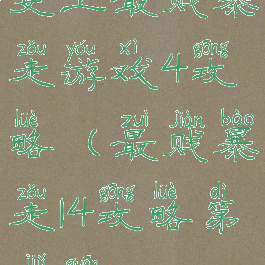 史上最贱暴
zǒu yóu xì gōng
走游戏4攻
lüè zuì jiàn bào
略（最贱暴
zǒu gōng lüè dì
走14攻略第